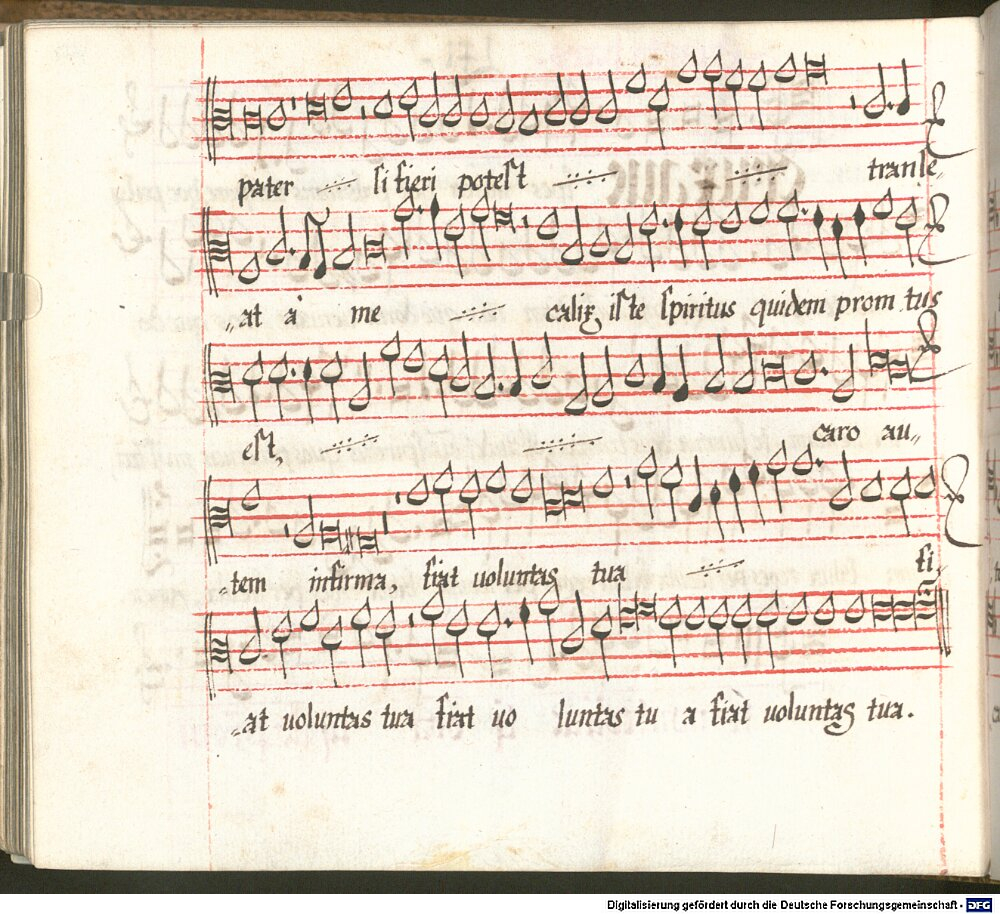 pater ·/. si fieri potest ·/. ·/. transe„
„at à me ·/. calix iste spiritus quidem prom tus
est, ·/. ·/. caro au„
„tem infirma, fiat uoluntas tua ·/. fi„
„at uoluntas tua fiat uo luntas tu a fiat uoluntas tua.
Digitalisierung gefördert durch die Deutsche Forschungsgemeinschaft - DFG